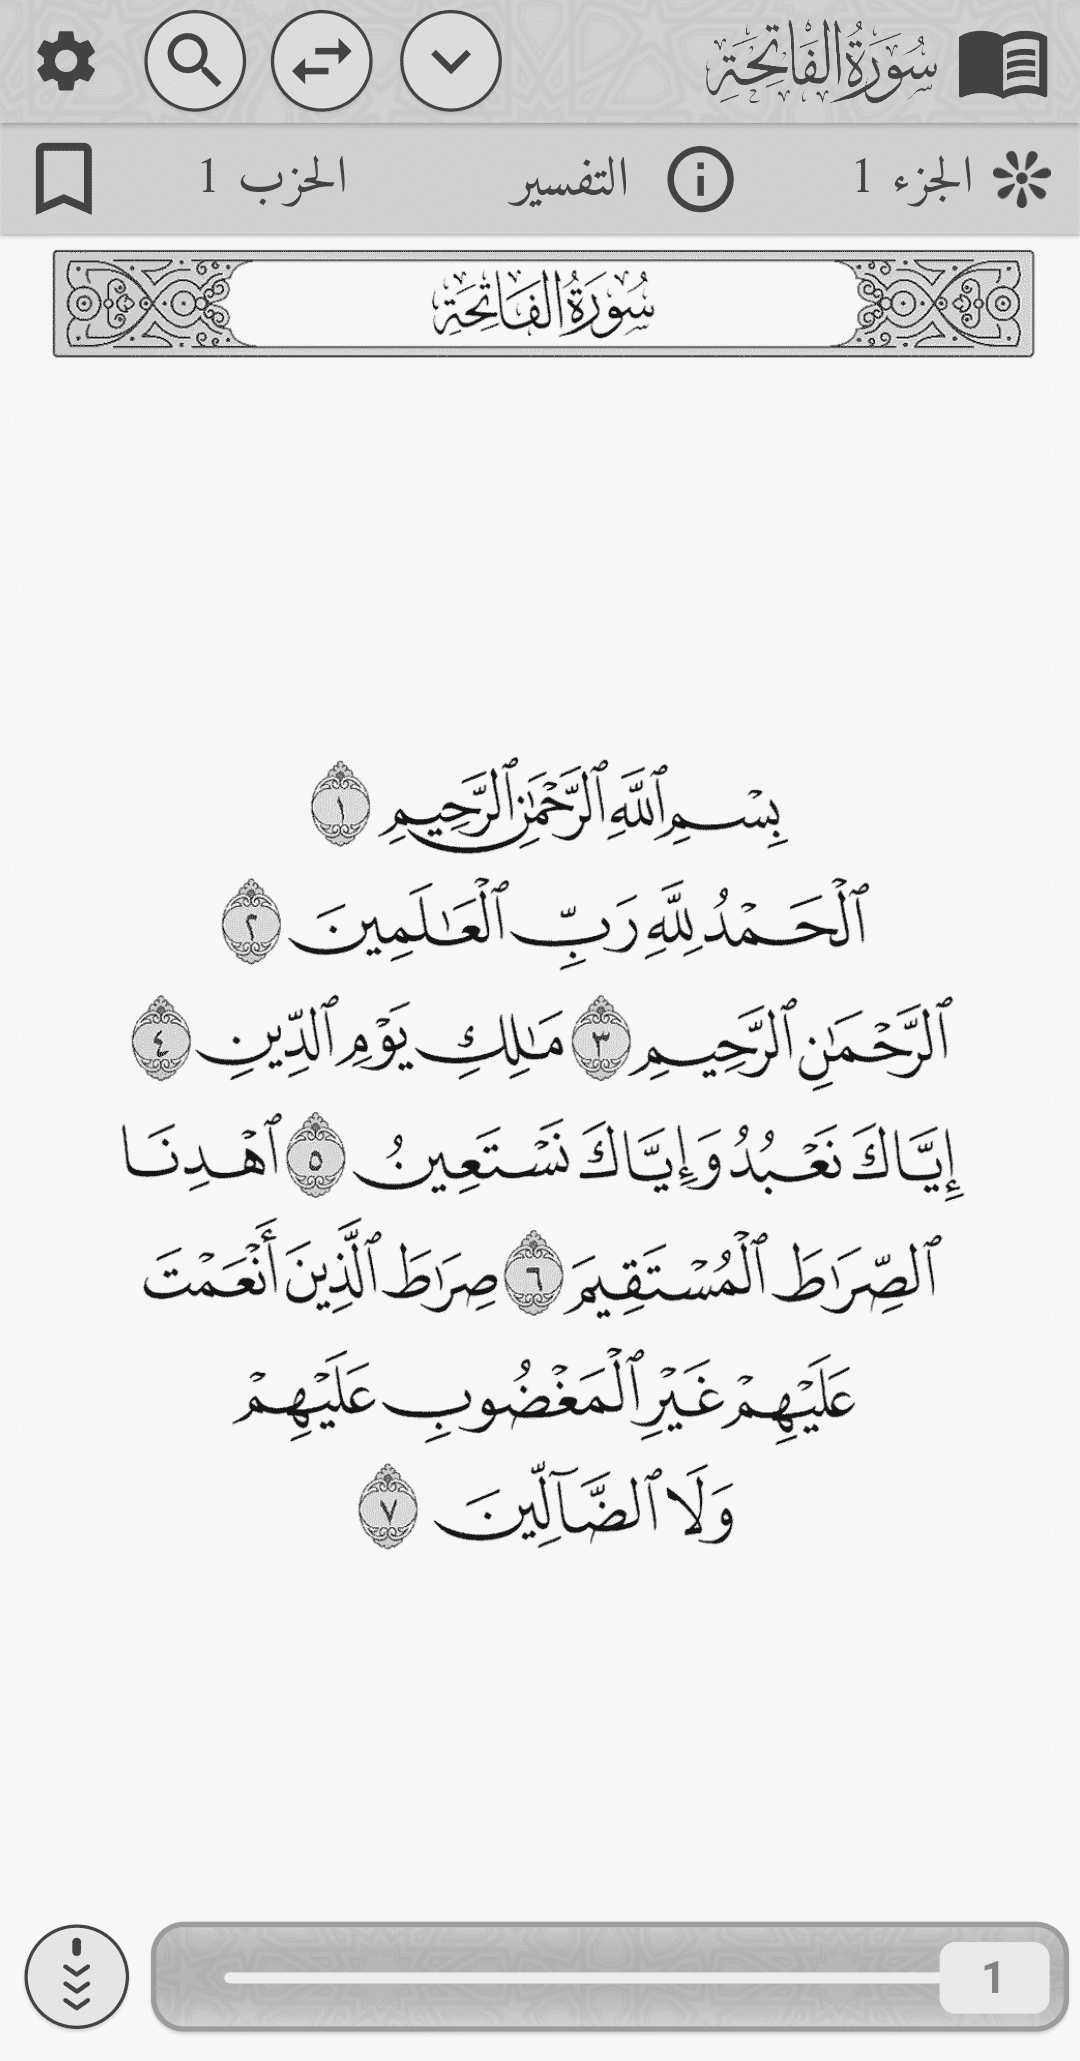 سُورَةُ الفَاتِحَةِ
الجزء 1 التفسير الحزب 1
سُورَةُ الفَاتِحَةِ
بِسْمِ ٱللَّهِ ٱلرَّحْمَٰنِ ٱلرَّحِيمِ ١
ٱلْحَمْدُ لِلَّهِ رَبِّ ٱلْعَٰلَمِينَ ٢
ٱلرَّحْمَٰنِ ٱلرَّحِيمِ ٣ مَٰلِكِ يَوْمِ ٱلدِّينِ ٤
إِيَّاكَ نَعْبُدُ وَإِيَّاكَ نَسْتَعِينُ ٥ ٱهْدِنَا
ٱلصِّرَٰطَ ٱلْمُسْتَقِيمَ ٦ صِرَٰطَ ٱلَّذِينَ أَنْعَمْتَ
عَلَيْهِمْ غَيْرِ ٱلْمَغْضُوبِ عَلَيْهِمْ
وَلَا ٱلضَّآلِّينَ ٧
1